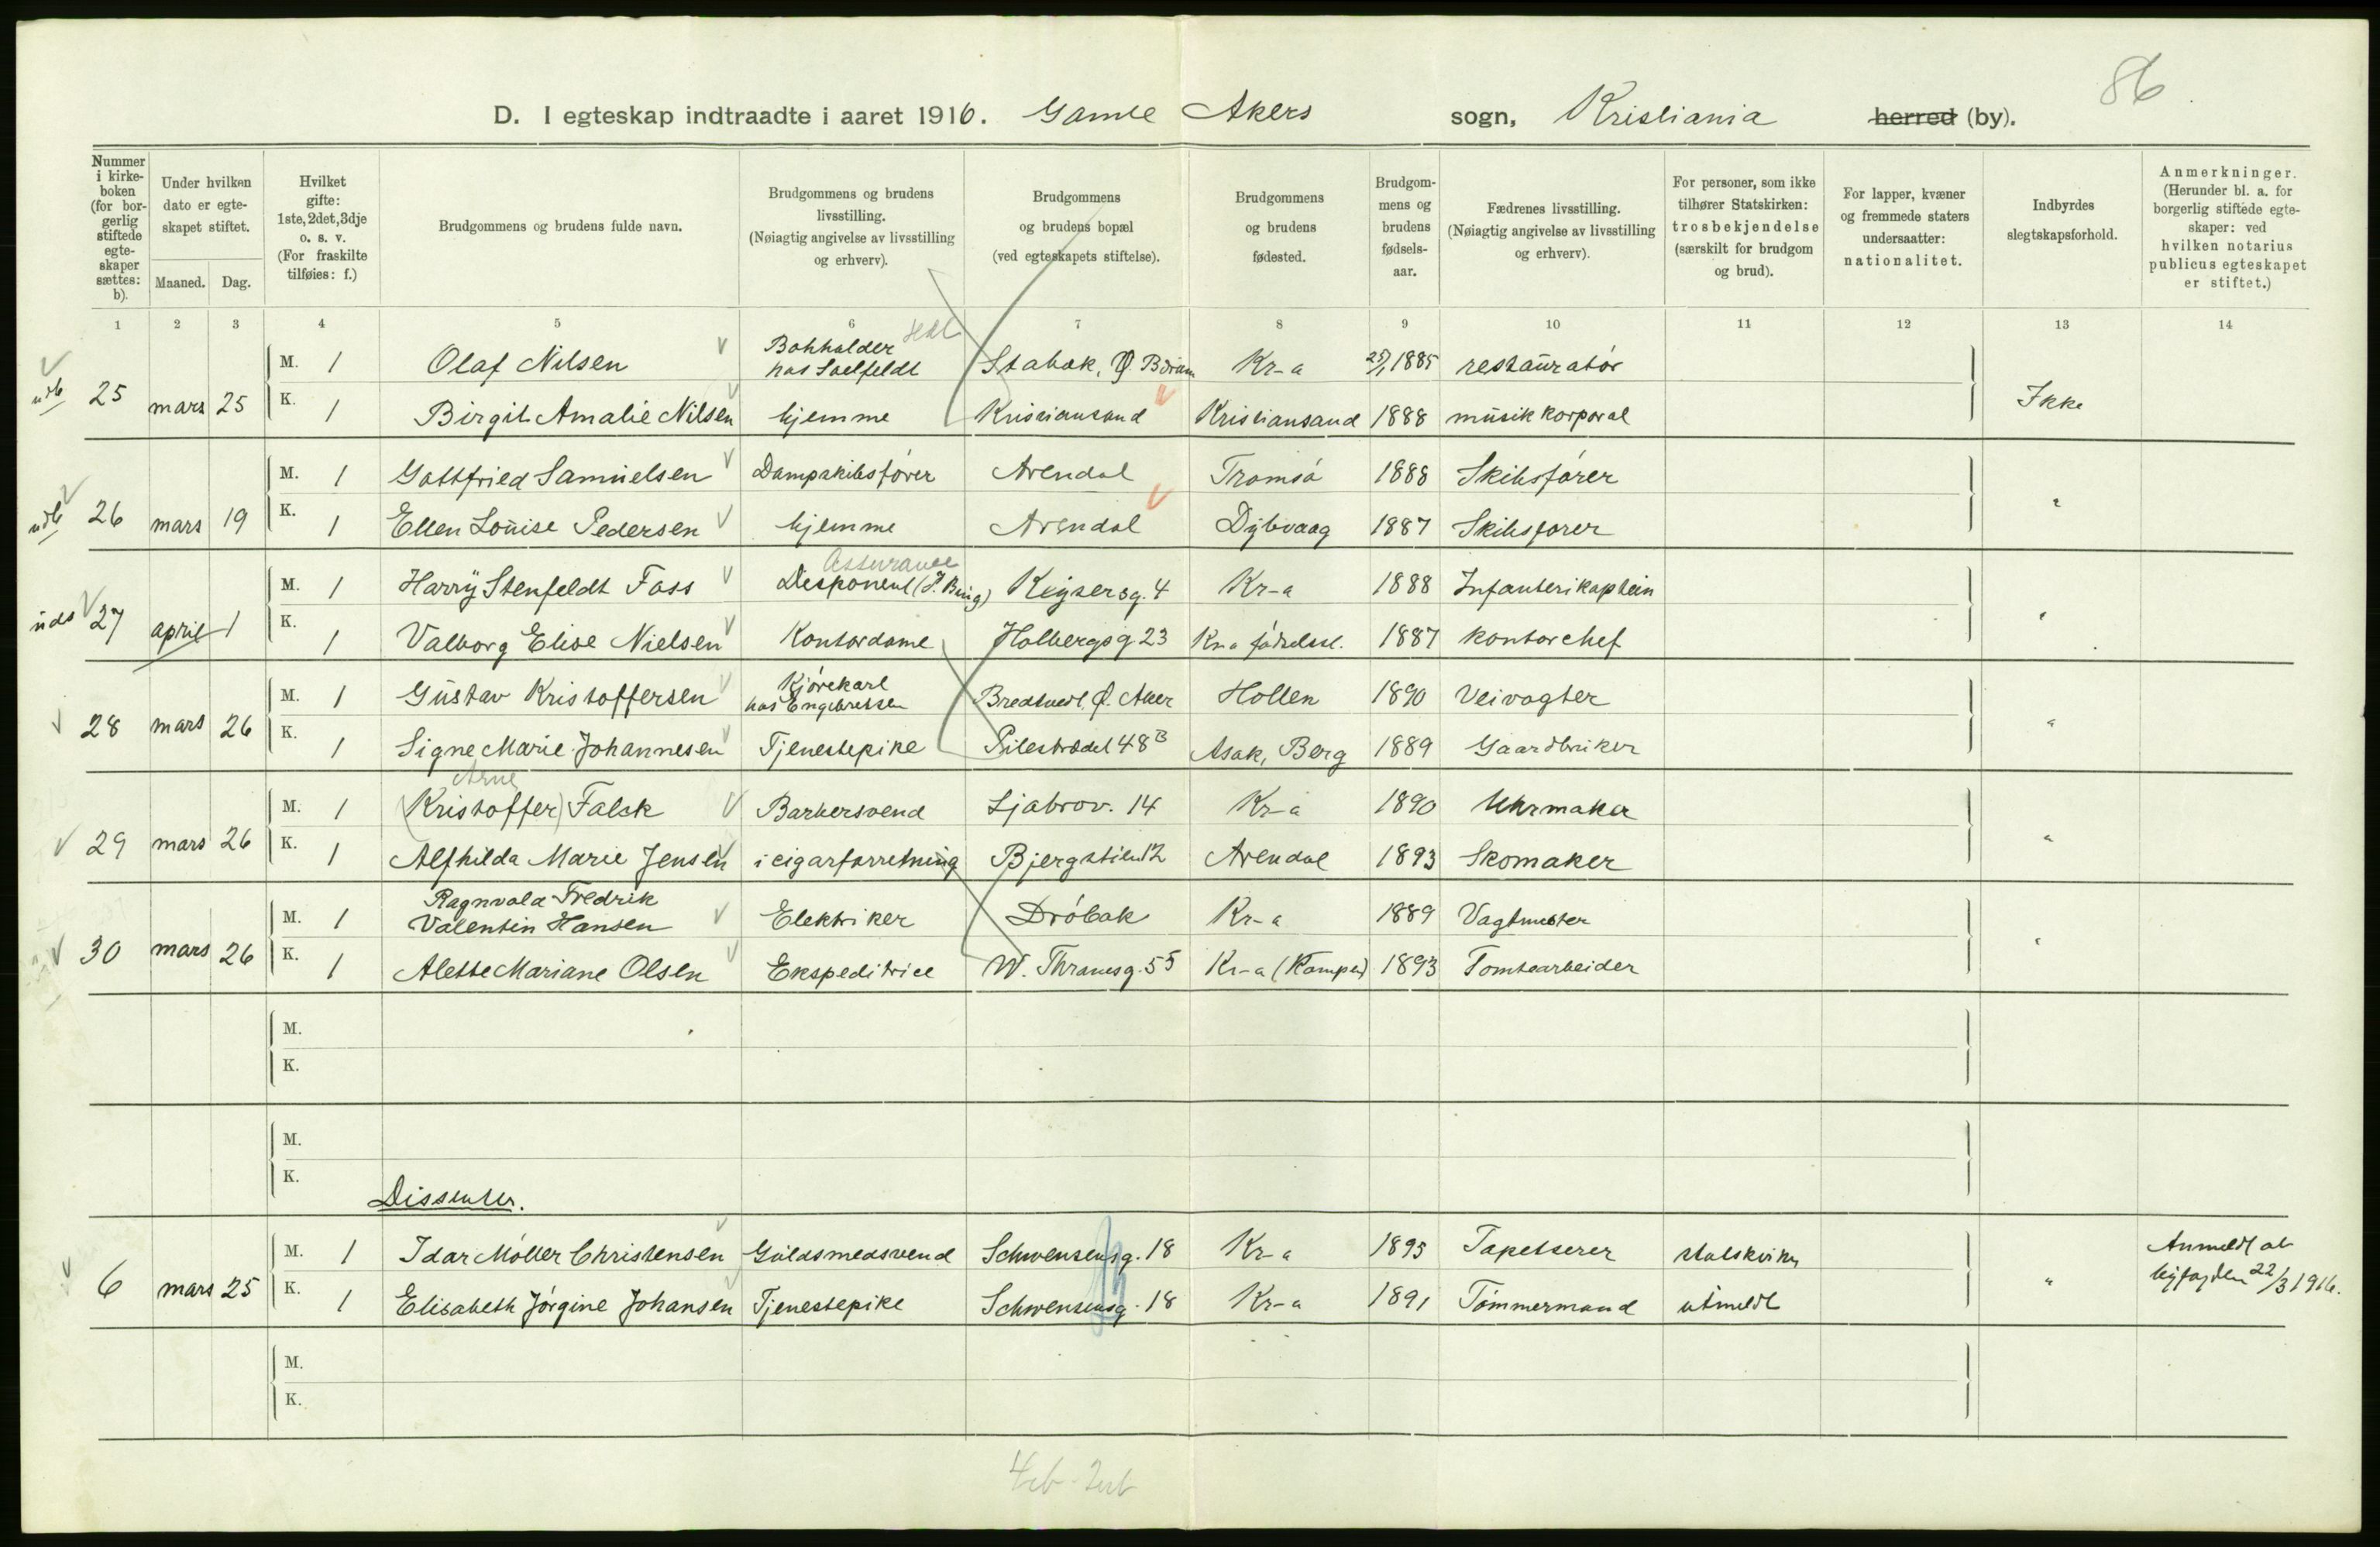 86
D. I egteskap indtraadte i aaret 1916. Gamle Akers sogn, Kristiania herred (by).
Nummer i kirke-boken (for bor-gerlig stiftede egte-skaper sættes: b).
Under hvilken dato er egte-skapet stiftet.
Maaned. Dag.
Hvilket gifte: 1ste, 2det, 3dje o. s. v. (For fraskilte tilføies: f.)
Brudgommens og brudens fulde navn.
Brudgommens og brudens livsstilling. (Nøiagtig angivelse av livsstilling og erhverv).
Brudgommens og brudens bopæl (ved egteskapets stiftelse).
Brudgommens og brudens fødested.
Brudgom-mens og brudens fødsels-aar.
Fædrenes livsstilling. (Nøiagtig angivelse av livsstilling og erhverv).
For personer, som ikke tilhører Statskirken: trosbekjendelse (særskilt for brudgom og brud).
For lapper, kvæner og fremmede staters undersaatter: nationalitet.
Indbyrdes slegtskapsforhold.
Anmerkninger. (Herunder bl. a. for borgerlig stiftede egte-skaper: ved hvilken notarius publicus egteskapet er stiftet.)
1 2 3 4 5 6 7 8 9 10 11 12 13 14
udb 25 mars 25 M. 1 Olaf Nilsen Bokholder hos Saelfeldt Stabæk, Ø. Bærum Kr-a 25/1 1885 restauratør
K. 1 Birgit Amalie Nilsen hjemme Kristiansand Kristiansand 1888 musikkorporal Ikke
udb 26 mars 19 M. 1 Gottfried Samuelsen Dampskibsfører Arendal Tromsö 1888 Skibsfører "
K. 1 Ellen Louise Pedersen hjemme Arendal Dybvaag 1887 Skibsfører
uds 27 april 1 M. 1 Harry Stenfeldt Foss Assurance Disponent (J. Bing) Keysersg. 4 Kr-a 1888 Infanterikaptein "
K. 1 Valborg Elise Nielsen Kontordame Holbergsg 23 Kr-a fødselsst. 1887 kontorchef
28 mars 26 M. 1 Gustav Kristoffersen Kjørekarl hos Engebretsen Bredtvedt, Ø. Aker Hollen 1890 Veivogter "
K. 1 Signe Marie Johannesen Tjenestepike Pilestrædet 48 B Asak, Berg 1889 Gaardbruker
29 mars 26 M. 1 Arne (Kristoffer) Falck Barbersvend Ljabrov. 14 Kr-a 1890 Uhrmaker "
K. 1 Alfhilda Marie Jensen i cigarforretning Bjergstien 12 Arendal 1893 Skomaker
30 mars 26 M. 1 Ragnvald Fredrik Valentin Hansen Elektriker Drøbak Kr-a 1889 Vagtmester "
K. 1 Alette Mariane Olsen Ekspeditrice W. Thranesg. 55 Kr-a (Kampen) 1893 Tomtearbeider
M.
K.
M.
K.
Dissenter.
6 mars 25 M. 1 Idar Møller Christensen Guldsmedsvend Schwensensg. 18 Kr-a 1895 Tapetserer statskirken " Anmeldt at
K. 1 Elisabeth Jørgine Johansen Tjenestepike Schwensensg. 18 Kr-a 1891 Tømmermand utmeldt 22/3 1916.
M.
K.